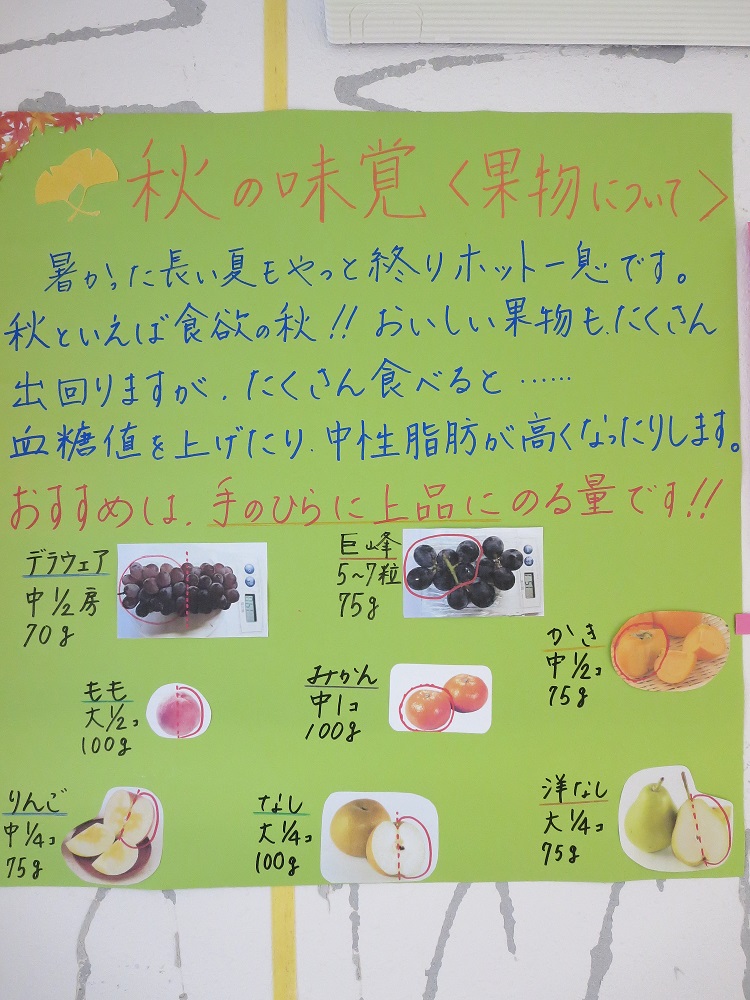 秋の味覚〈果物について〉
暑かった長い夏もやっと終りホット一息です。
秋といえば食欲の秋!! おいしい果物も、たくさん
出回りますが、たくさん食べると……
血糖値を上げたり、中性脂肪が高くなったりします。
おすすめは、手のひらに上品にのる量です!!
デラウェア
中1/2房
70g
巨峰
5~7粒
75g
かき
中1/2コ
75g
もも
大1/2コ
100g
みかん
中1コ
100g
りんご
中1/4コ
75g
なし
大1/4コ
100g
洋なし
大1/4コ
75g